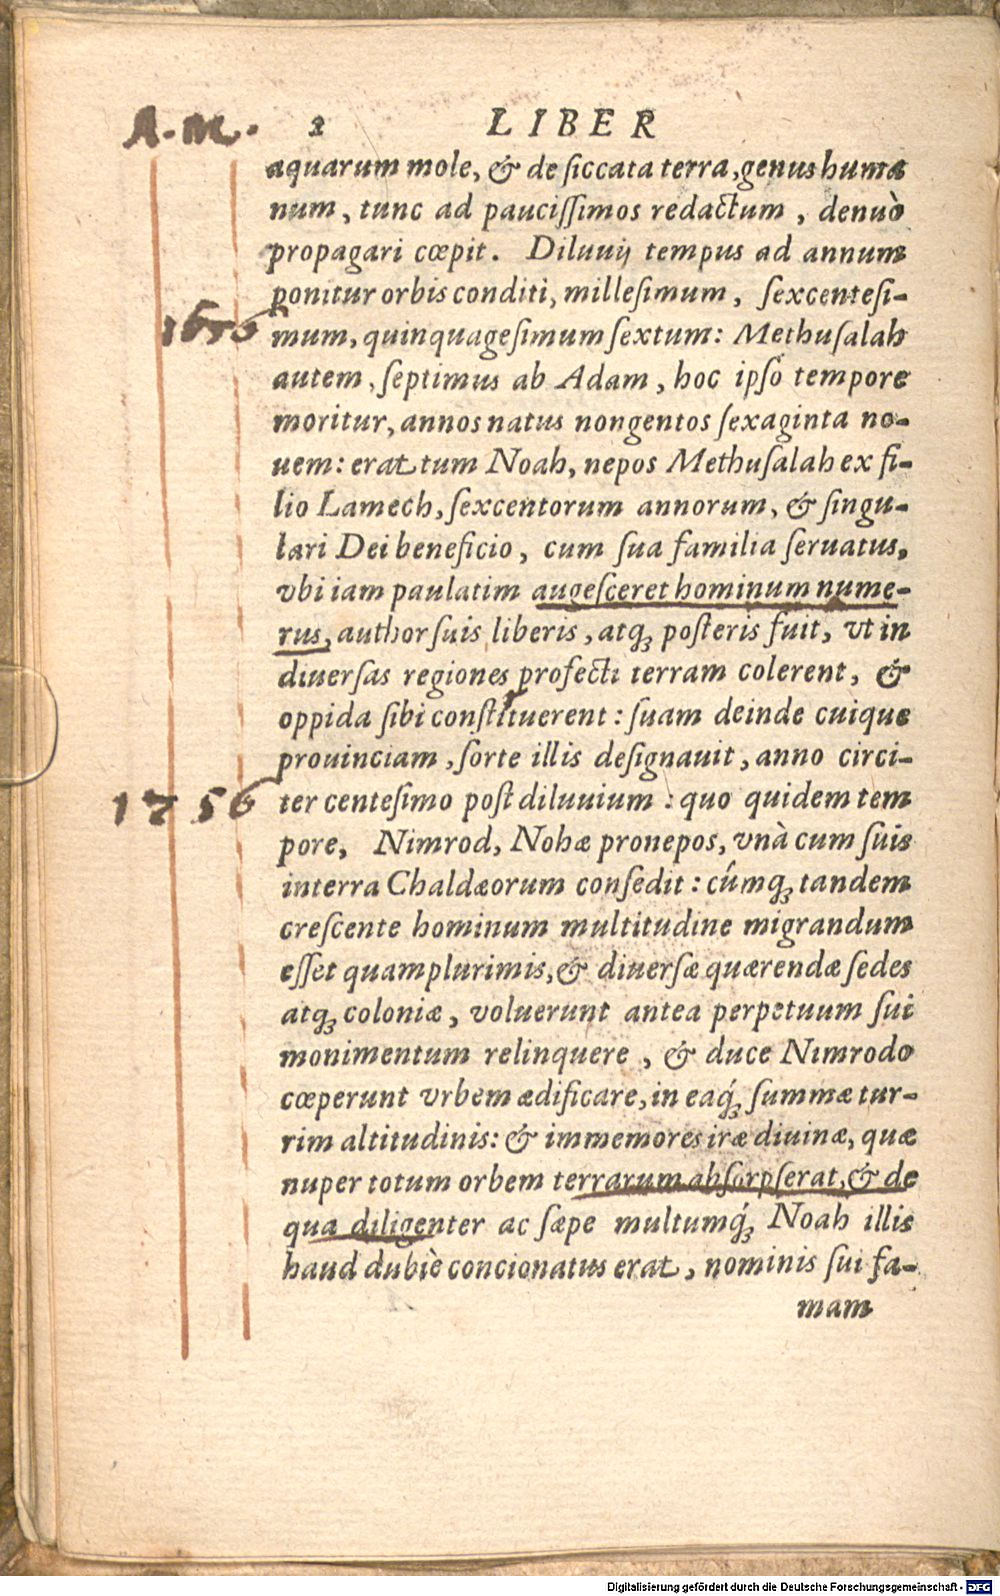 A. M.
2 LIBER
aquarum mole, & de siccata terra, genus huma
num, tunc ad paucissimos redactum, denuò
propagari cœpit. Diluuij tempus ad annum
ponitur orbis conditi, millesimum, sexcentesi-
1656
mum, quinquagesimum sextum: Methusalah
autem, septimus ab Adam, hoc ipso tempore
moritur, annos natus nongentos sexaginta no-
uem: erat tum Noah, nepos Methusalah ex fi-
lio Lamech, sexcentorum annorum, & singu-
lari Dei beneficio, cum sua familia seruatus,
vbi iam paulatim augesceret hominum nume-
rus, author suis liberis, atq; posteris fuit, vt in
diuersas regiones profecti terram colerent, &
oppida sibi constituerent: suam deinde cuique
prouinciam, sorte illis designauit, anno circi-
1756
ter centesimo post diluuium: quo quidem tem
pore, Nimrod, Nohæ pronepos, vnà cum suis
in terra Chaldæorum consedit: cúmq; tandem
crescente hominum multitudine migrandum
esset quamplurimis, & diuersæ quærendæ sedes
atq; coloniæ, voluerunt antea perpetuum sui
monimentum relinquere, & duce Nimrodo
cœperunt vrbem ædificare, in eaq́; summæ tur-
rim altitudinis: & immemores iræ diuinæ, quæ
nuper totum orbem terrarum absorpserat, & de
qua diligenter ac sæpe multumq́; Noah illis
haud dubiè concionatus erat, nominis sui fa-
mam
Digitalisierung gefördert durch die Deutsche Forschungsgemeinschaft - DFG